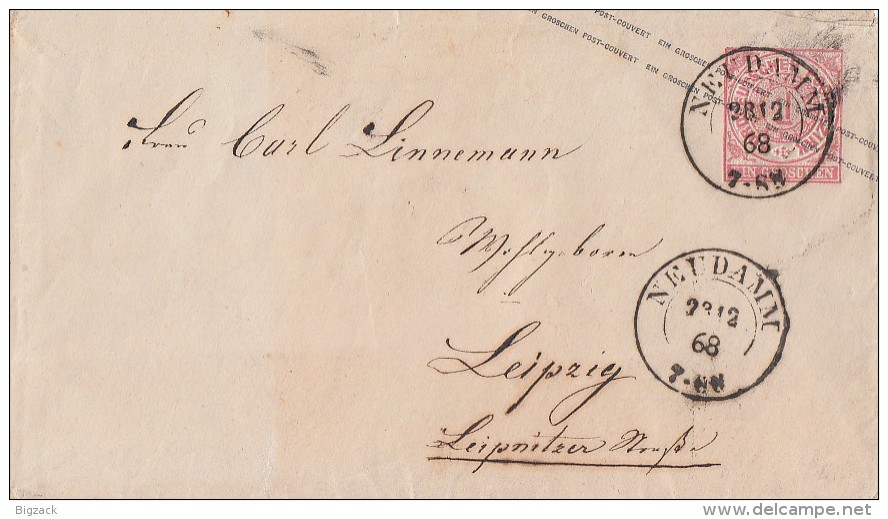 POST-COUVERT EIN GROSCHEN POST-COUVERT
EIN GROSCHEN POST-COUVERT EIN GROSCHEN POST-COUVERT
EIN GROSCHEN
NEUDAMM
28 12
68
7-8N
Frau Carl Linnemann
Wohlgeboren
NEUDAMM
28 12
68
7-8N
Leipzig
Leipnitzer Straße
Bigzack
www.delcampe.net